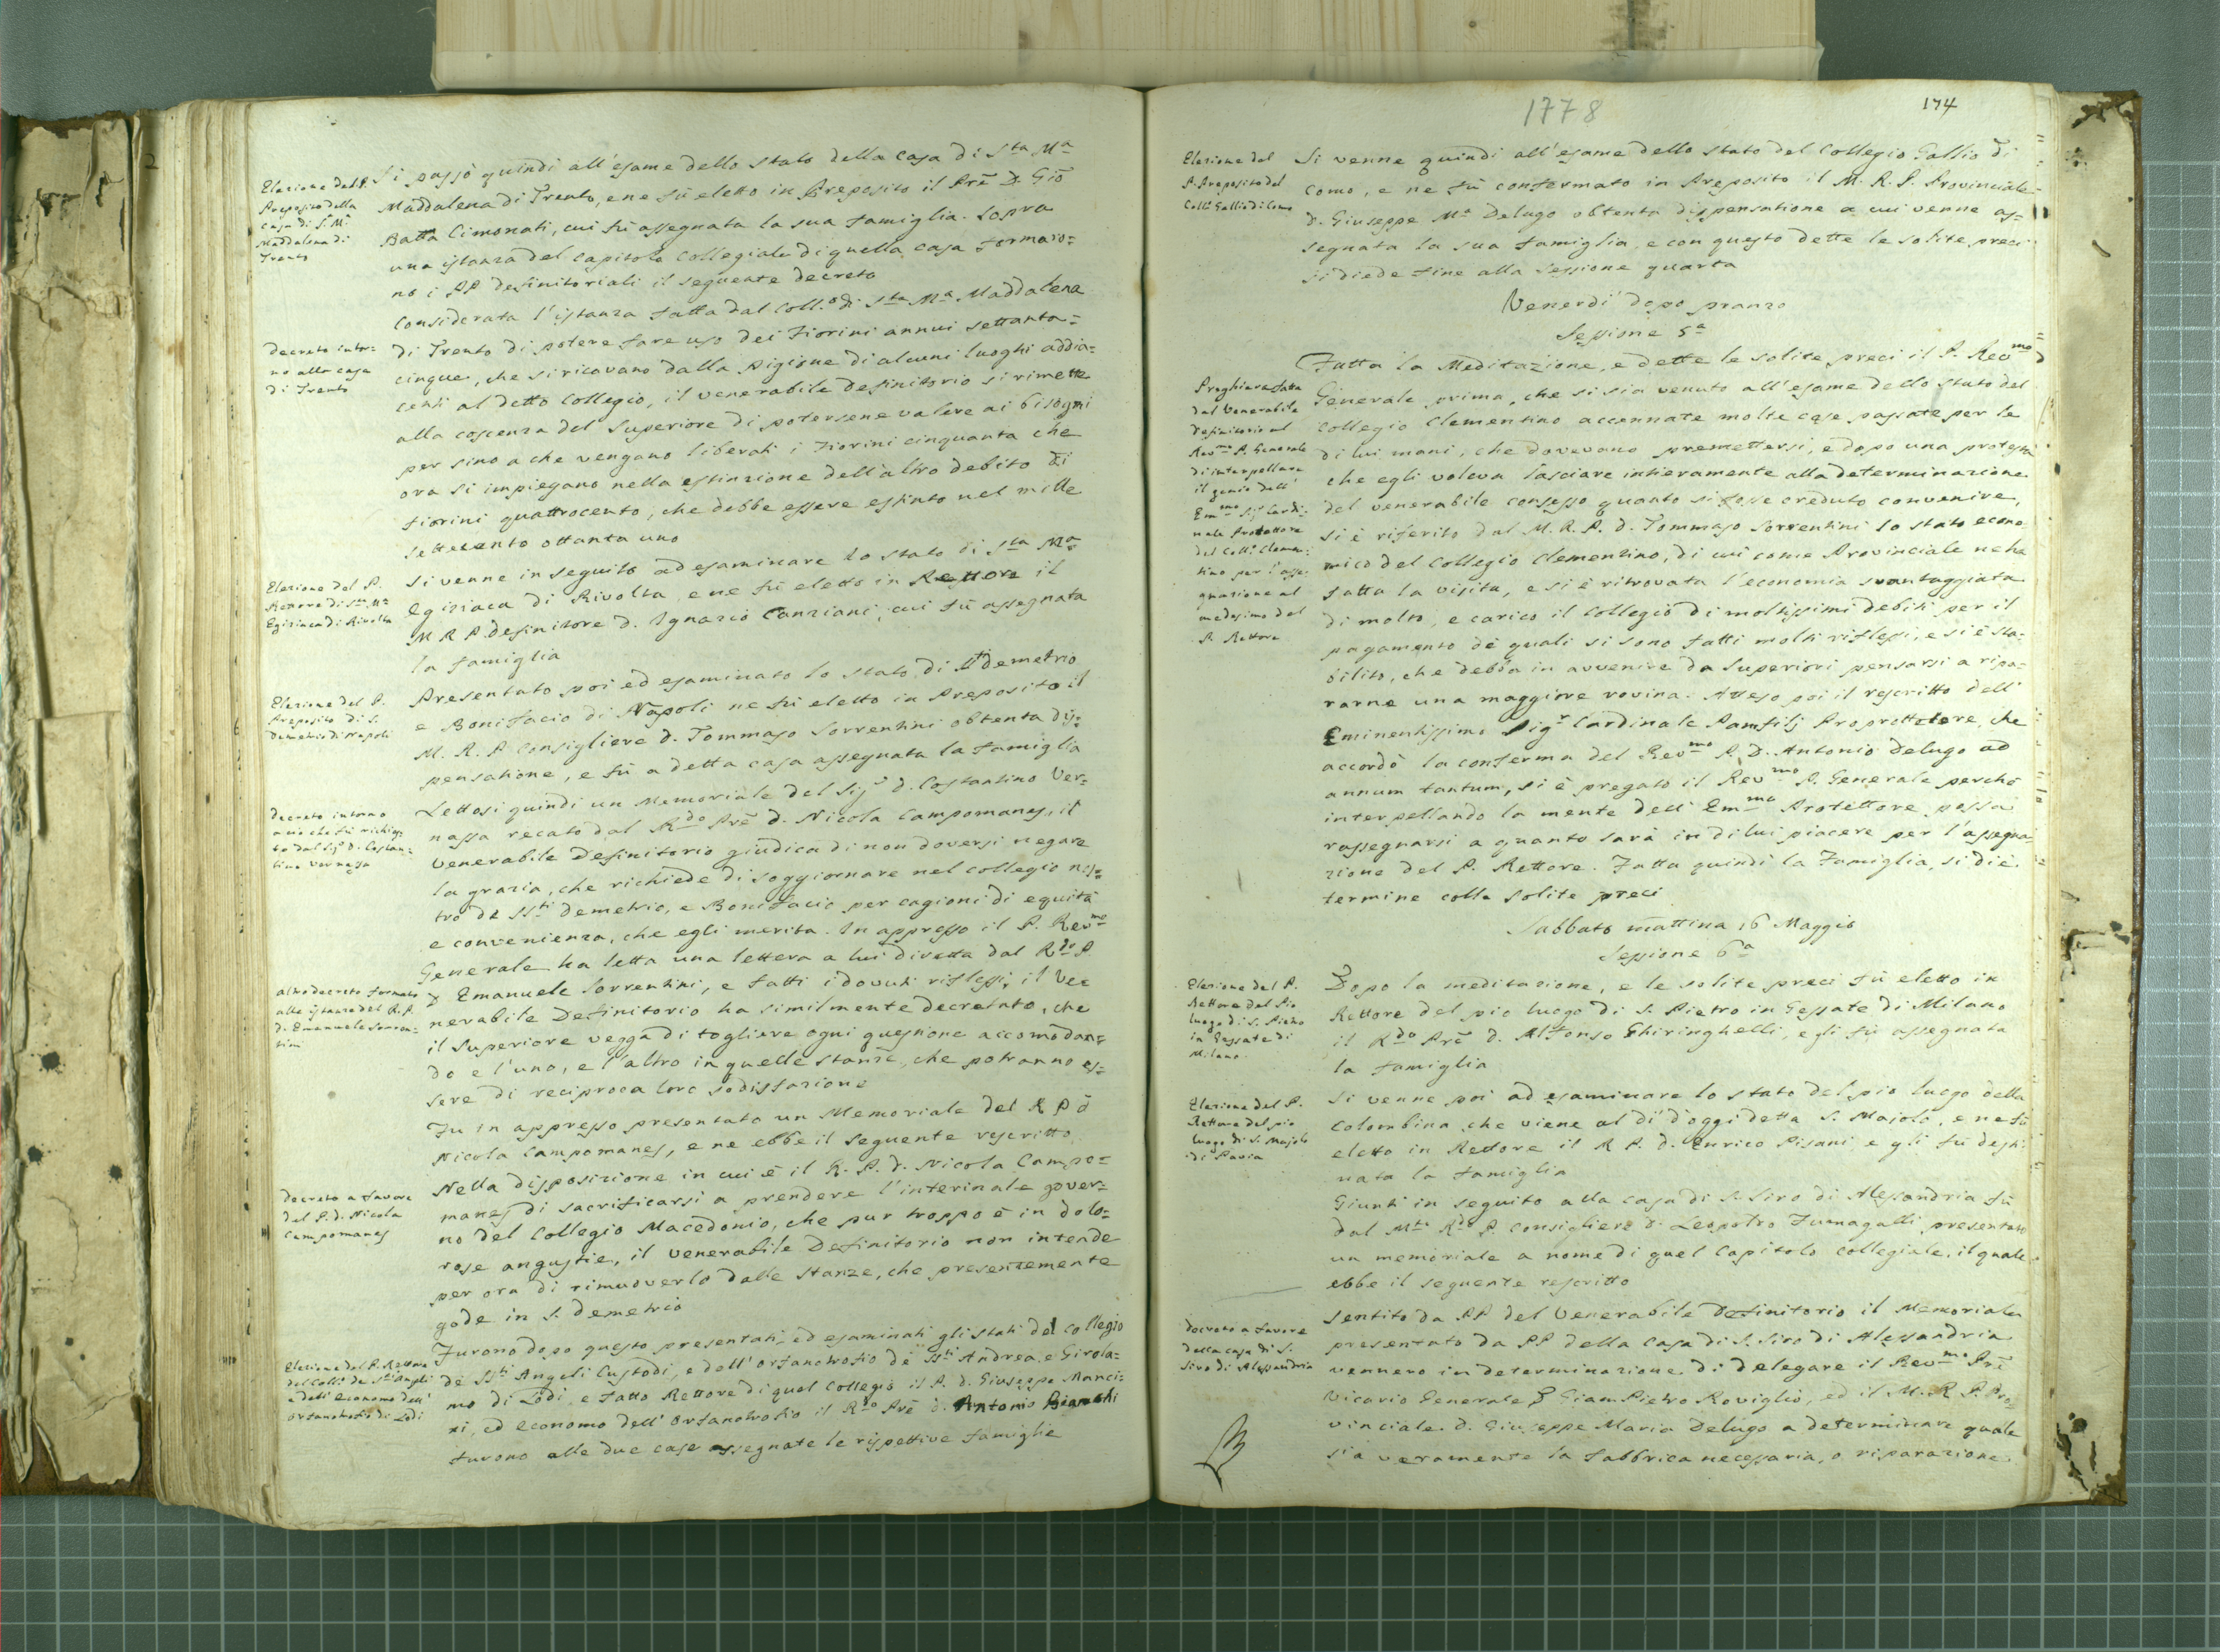 Elezione del P.
Preposito della
Casa di S. Mª
Maddalena di
Trento
Si passò quindi all'esame dello stato della casa di Sta Mª
Maddalena di Trento, e ne fù eletto in Preposito il Prē D. Giō
Batta Cimonati, cui fù assegnata la sua famiglia. Sopra
una istanza del capitolo Collegiale di quella casa formaro=
no i PP Definitoriali il seguente decreto
decreto intor=
no alla casa
di Trento
Considerata l'istanza fatta dal Coll.º di Sta Mª Maddalena
di Trento di potere fare uso dei Fiorini annui settanta=
cinque, che si ricavano dalla Pigione di alcuni luoghi addia=
centi al detto Collegio, il venerabile Definitorio si rimette
alla coscenza del Superiore di potersene valere ai bisogni
per sino a che vengano liberati i Fiorini cinquanta che
ora si impiegano nella estinzione dell'altro debito di
fiorini quattrocento, che debbe essere estinto nel mille
settecento ottanta uno
Elezione del P.
Rettore di Sta Mª
Egiziaca di Rivolta
Si venne in seguito ad esaminare lo stato di Sta Mª
Egiziaca di Rivolta, e ne fù eletto in Rettore il
M R P Definitore D. Ignazio Canziani, cui fù assegnata
la famiglia
Elezione del P.
Preposito di S.
Demetrio di Napoli
Presentato poi ed esaminato lo stato di Sti Demetrio
e Bonifacio di Napoli ne fù eletto in Preposito il
M. R. P Consigliere d. Tommaso Sorrentini obtenta dis=
pensatione, e fù a detta casa assegnata la famiglia
decreto intorno
a ciò che fù richies
to dal Sigr D. Costan=
tino Vernassa
Lettosi quindi un Memoriale del Sigr d. Costantino Ver=
nassa recato dal Rdo Prē d. Nicola Campomanes, il
venerabile Definitorio giudica di non doversi negare
la grazia, che richiede di soggiornare nel collegio nos=
tro de SSti Demetrio, e Bonifacio per cagioni di equità
e convenienza, che egli merita. In appresso il P. Revmo
altro decreto formato
alle istanze del R. P.
D. Emanuele Sorren=
tini
Generale ha letta una lettera a lui diretta dal Rdo P.
D Emanuele Sorrentini, e fatti i dovuti riflessi, il Ve=
nerabile Definitorio ha similmente decretato, che
il Superiore vegga di togliere ogni questione accomodan=
do e l'uno, e l'altro in quelle stanze, che potranno es=
sere di reciproca loro sodisfazione
Fu in appresso presentato un Memoriale del R P D
Nicola Campomanes, e ne ebbe il seguente rescritto
decreto a favore
del P. d. Nicola
Campomanes
Nella disposizione in cui è il R. P. d. Nicola Campo=
manes di sacrificarsi a prendere l'interinale gover=
no del Collegio Macedonio, che pur troppo è in dolo=
rose angustie, il venerabile Definitorio non intende
per ora di rimuoverlo dalle stanze, che presentemente
gode in S. Demetrio
Elezione del P. Rettore
del Coll.º de Sti Angeli
e dell' Economo dell'
Orfanotrofio di Lodi
Furono dopo questo presentati, ed esaminati gli stati del Collegio
de SSti Angeli Custodi, e dell'orfanotrofio de SSti Andrea, e Girola=
mo di Lodi, e fatto Rettore di quel Collegio il P. d. Giuseppe Manci=
ni, ed Economo dell'Orfanotrofio il Rdo Prē d. Antonio Bianchi
furono alle due case assegnate le rispettive famiglie
1778
174
Elezione del
P. Preposito del
Coll.º Gallio di Como
Si venne quindi all'esame dello stato del Collegio Gallio di
Como, e ne fù confermato in Preposito il M. R. P. Provinciale
D. Giuseppe Mª Delugo obtenta dispensatione a cui venne as=
segnata la sua famiglia, e con questo dette le solite preci
si diede fine alla Sessione quarta
Venerdi dopo pranzo
Sessione 5ª
Preghiera fatta
dal Venerabile
Definitorio al
Revmo P. Generale
di interpellare
il genio dell'
Emmo Sigr Cardi=
nale Protettore
del Coll.º Clemen=
tino per l'asse=
gnazione al
medesimo del
P. Rettore
Fatta la Meditazione, e dette le solite preci il P. Revmo
Generale prima, che si sia venuto all'esame dello stato del
Collegio Clementino accennate molte cose passate per le
di lui mani, che dovevano premettersi, e dopo una protesta
che egli voleva lasciare intieramente alla determinazione
del venerabile consesso quanto si fosse creduto convenire,
si è riferito dal M. R. P. d. Tommaso Sorrentini lo stato econo
mico del Collegio Clementino, di cui come Provinciale ne ha
fatta la visita, e si è ritrovata l'economia svantaggiata
di molto, e carico il Collegio di moltissimi debiti per il
pagamento dè quali si sono fatti molti riflessi, e si è sta=
bilito, che debba in avvenire da Superiori pensarsi a ripa=
rarne una maggiore rovina. Atteso poi il rescritto dell'
Eminentissimo Sigr Cardinale Pamfilj Proprottettore, che
accordò la conferma del Revmo P. D. Antonio Delugo ad
annum tantum, si è pregato il Revmo P. Generale perchè
interpellando la mente dell'Emmo Protettore possa
rassegnarsi a quanto sarà in di lui piacere per l'assegna=
zione del P. Rettore. Fatta quindi la Famiglia, si diè
termine colle solite preci
Sabbato mattina 16 Maggio
Sessione 6ª
Elezione del P.
Rettore del Pio
luogo di S. Pietro
in Gessate di
Milano.
Dopo la meditazione, e le solite preci fù eletto in
Rettore del pio luogo di S. Pietro in Gessate di Milano
il Rdo Prē d. Alfonso Ghiringhelli, e gli fù assegnata
la famiglia
Elezione del P.
Rettore del pio
luogo di S. Majolo
di Pavia
Si venne poi ad esaminare lo stato del pio luogo della
Colombina, che viene al dì d'oggi detta S. Majolo, e ne fù
eletto in Rettore il R P. d. Enrico Pisani e gli fù desti
nata la famiglia
Giunti in seguito alla casa di S. Siro di Alesandria fù
dal Mto Rdo P. Consigliere d. Leopoldo Fumagalli presentato
un memoriale a nome di quel Capitolo collegiale, il quale
ebbe il seguente rescritto
decreto a favore
della casa di S.
Siro di Alessandria
Sentito da PP del Venerabile Definitorio il Memoriale
presentato da PP della Casa di S. Siro di Alessandria
vennero in determinazione di delegare il Revmo Prē
Vicario Generale D GiamPietro Roviglio, ed il M. R P. Pro=
vinciale d. Giuseppe Maria Delugo a determinare quale
sia veramente la fabbrica necessaria, o riparazione